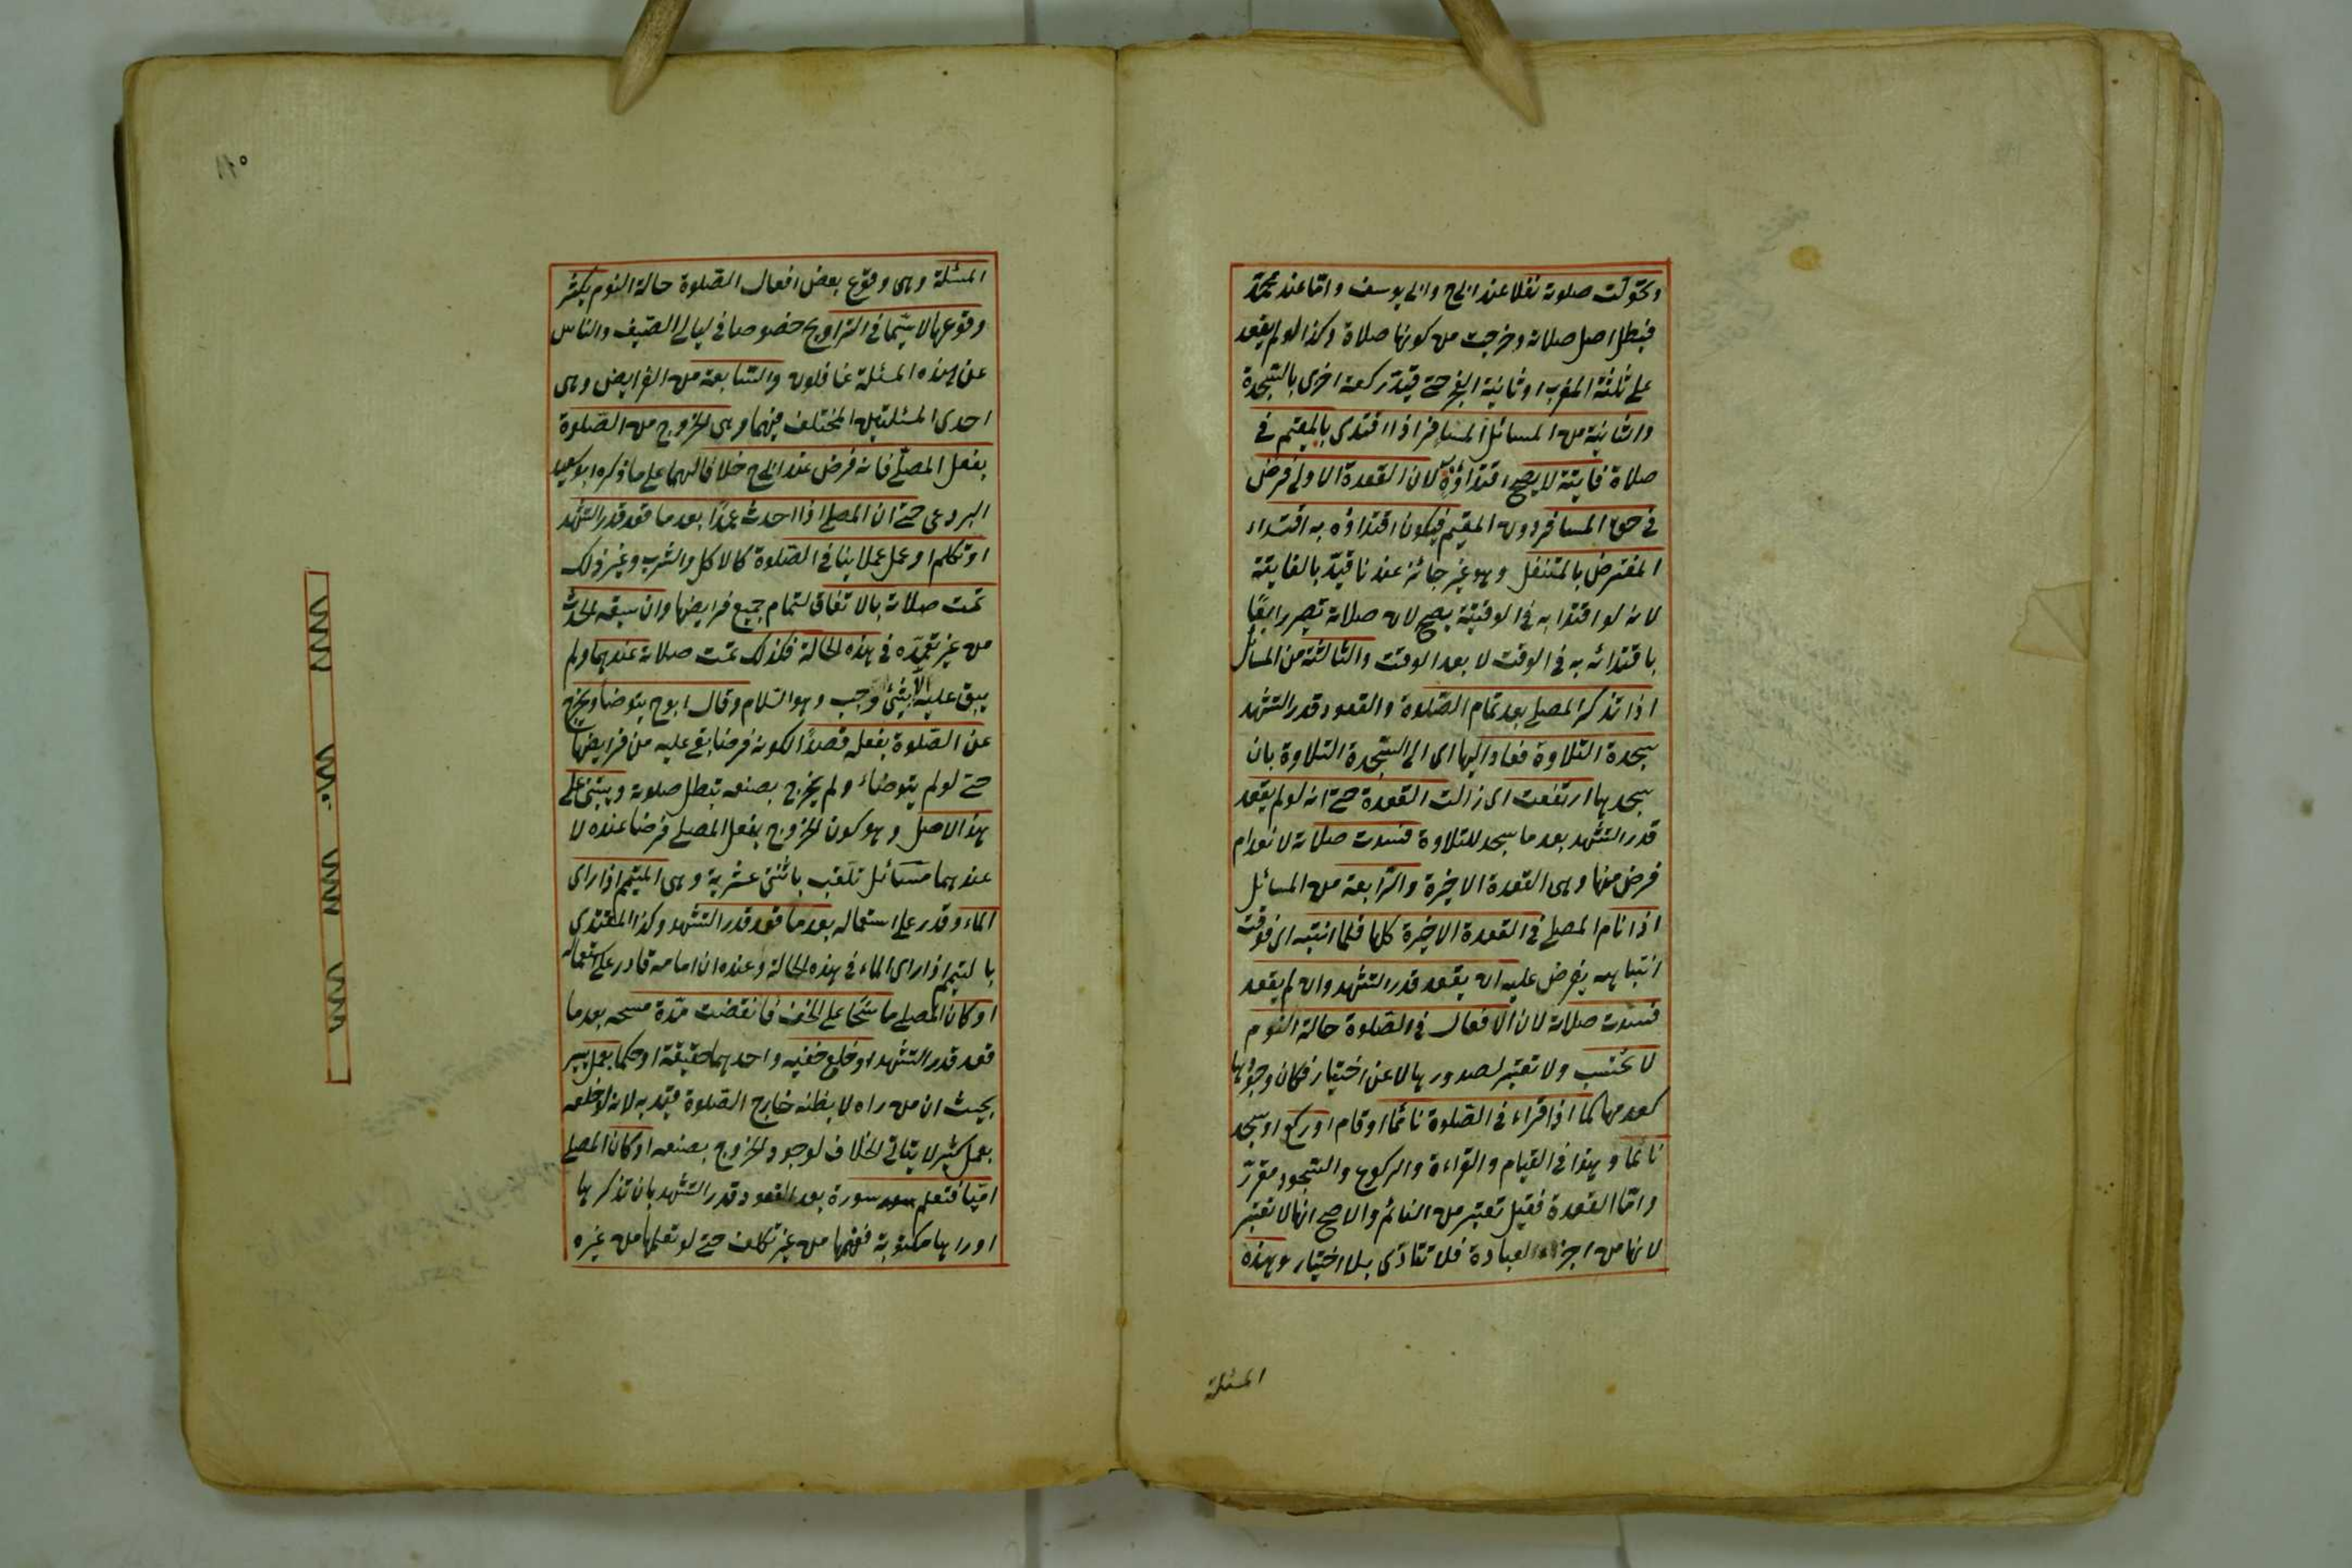 وتحولت صلوته نفلا عند ابى ح وابى يوسف واما عند محمد
فيبطل اصل صلاته وخرجت من كونها صلاة وكذا لو لم يقعد
على ثالثة المغرب او ثانية الفجر حتى قيد ركعة اخرى بالسجدة
والثانية من المسائل المسافر اذا اقتدى بالمقيم فى
صلاة فايتة لا يصح اقتداؤه لان القعدة الاولى فرض
فى حق المسافر دون المقيم فيكون اقتداؤه به اقتداء
المفترض بالمتنفل وهو غير جائز عندنا قيد بالفايتة
لانه لو اقتدا به فى الوقتية يصح لان صلاته تصير رابعًا
باقتدائه به فى الوقت لا بعد الوقت والثالثة من المسائل
اذا تذكر المصلى بعد تمام الصلوة والقعود قدر التشهد
سجدة التلاوة فعاد اليها اى الى السجدة التلاوة بان
سجدها ارتفعت اى زالت القعدة حتى انه لو لم يقعد
قدر التشهد بعد ما سجد للتلاوة فسدت صلاته لانعدام
فرض منها وهى القعدة الاخيرة والرابعة من المسائل
اذا نام المصلى فى القعدة الاخيرة كلها فلما انتبه اى فوقت
انتباهه يفرض عليه ان يقعد قدر التشهد وان لم يقعد
فسدت صلاته لان الافعال فى الصلوة حالة النوم
لا تحتسب ولا تعتبر لصدورها لا عن اختيار فكان وجودها
كعدمها كما اذا قراء فى الصلوة نائما او قام او ركع او سجد
نائما وهذا فى القيام والقراءة والركوع والسجود مقرر
واما القعدة فقيل تعتبر من النائم والاصح انها لا تعتبر
لانها من اجزاء العبادة فلا تتأدى بلا اختيار وهذه
المسئلة
المسئلة وهى وقوع بعض افعال الصلوة حالة النوم يكثر
وقوعها لا سيما فى التراويح خصوصا فى ليالى الصيف والناس
عن هذه المسئلة غافلون والسابعة من الفرايض وهى
احدى المسئلتين المختلف فيهما وهى الخروج من الصلوة
بفعل المصلى فانه فرض عند ابى ح خلافا لهما على ما ذكره ابو سعيد
البردعى حتى ان المصلى اذا احدث عمدًا بعد ما قعد قدر التشهد
او تكلم او عمل عملا ينافى الصلوة كالاكل والشرب وغير ذلك
تمت صلاته بالاتفاق لتمام جميع فرايضها وان سبقه الحدث
من غير تعمده فى هذه الحالة فكذلك تمت صلاته عندهما ولم
يبق عليه الا شئ واجب وهو السلام وقال ابو ح يتوضا ويخرج
عن الصلوة بفعله قصدًا لكونه فرضا بقى عليه من فرايضها
حتى لو لم يتوضاء ولم يخرج بصنعه تبطل صلوته ويبتنى على
هذا الاصل وهو كون الخروج بفعل المصلى فرضا عنده لا
عندهما مسائل تلقب باثنى عشرية وهى المتيمم اذا راى
الماء وقدر على استعماله بعد ما قعد قدر التشهد وكذا المقتدى
بالمتيمم اذا راى الماء فى هذه الحالة وعنده ان امامه قادر على استعماله
او كان المصلى ماسحا على الخف فانقضت مدة مسحه بعد ما
قعد قدر التشهد او خلع خفيه واحدهما حقيقة او حكما بعمل يسير
بحيث ان من راه لا يظنه خارج الصلوة قيد به لانه لو خلعه
بعمل كثير لا يتأتى الخلاف لوجود الخروج بصنعه او كان المصلى
اميا فتعلم سورة بعد القعود قدر التشهد بان تذكرها
او راها مكتوبة ففهمها من غير تكلف حتى لو تعلمها من غيره